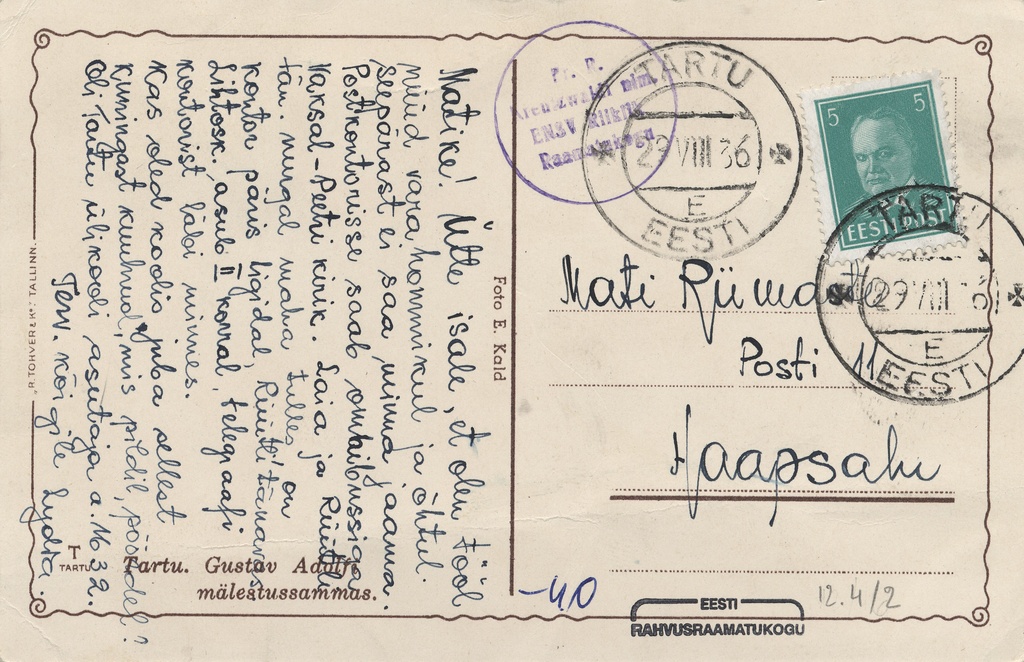 Matike! Ütle isale, et olen tööl
nüüd vara hommikul ja õhtul.
Seepärast ei saa minna jaama.
Postkontorisse saab omnibussiga
Vaksal-Peetri kirik. Laia ja Rüütli
tän. nurgal maha tulles on
kontor päris ligidal, Rüütli tänavas
Lihtosk. asub II korral, telegraafi
kontorist läbi minnes.
Kas oled koolis juba sellest
kuningast kuulnud, mis pildil, pöördel?
Oli Tartu ülikooli asutaja a. 1632.
Terv. kõigile Lydia.
Foto E. Kald
R. TOHVER & Ko. TALLINN.
T
TARTU
Tartu. Gustav Adolfi
mälestussammas.
Fr. R.
Kreutzwaldi nim.
ENSV Riiklik
Raamatukogu
TARTU
29 VIII 36
E
EESTI
5 5
EESTI POST
TARTU
29 VIII 36
E
EESTI
Mati
Posti 11
Haapsalu
-40
12.4/2
EESTI
RAHVUSRAAMATUKOGU